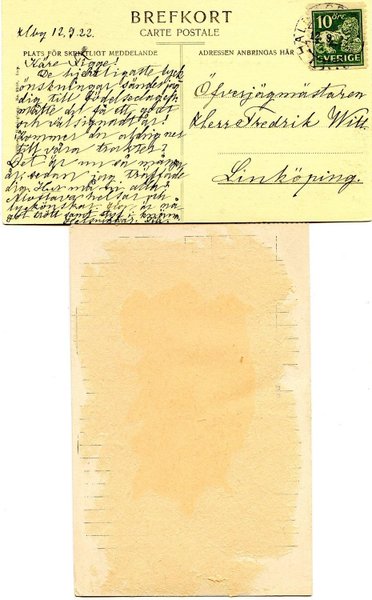 BREFKORT
CARTE POSTALE
PLATS FÖR SKRIFTLIGT MEDDELANDE
ADRESSEN ANBRINGAS HÄR
10 ÖRE
SVERIGE
12.9.22.
Käre Figge!
De hjärtligaste lyck
önskningar sändes
dig till födelsedagen
måtte det få ett godt
och välsignadt år!
Kommer du aldrig ner
till våra trakter?
Det är nu så många
år sedan jag träffade
dig. Hur må ni alla?
hälsar och
lyckönskar
Öfverjägmästaren
Herr Fredrik Witt
Linköping.